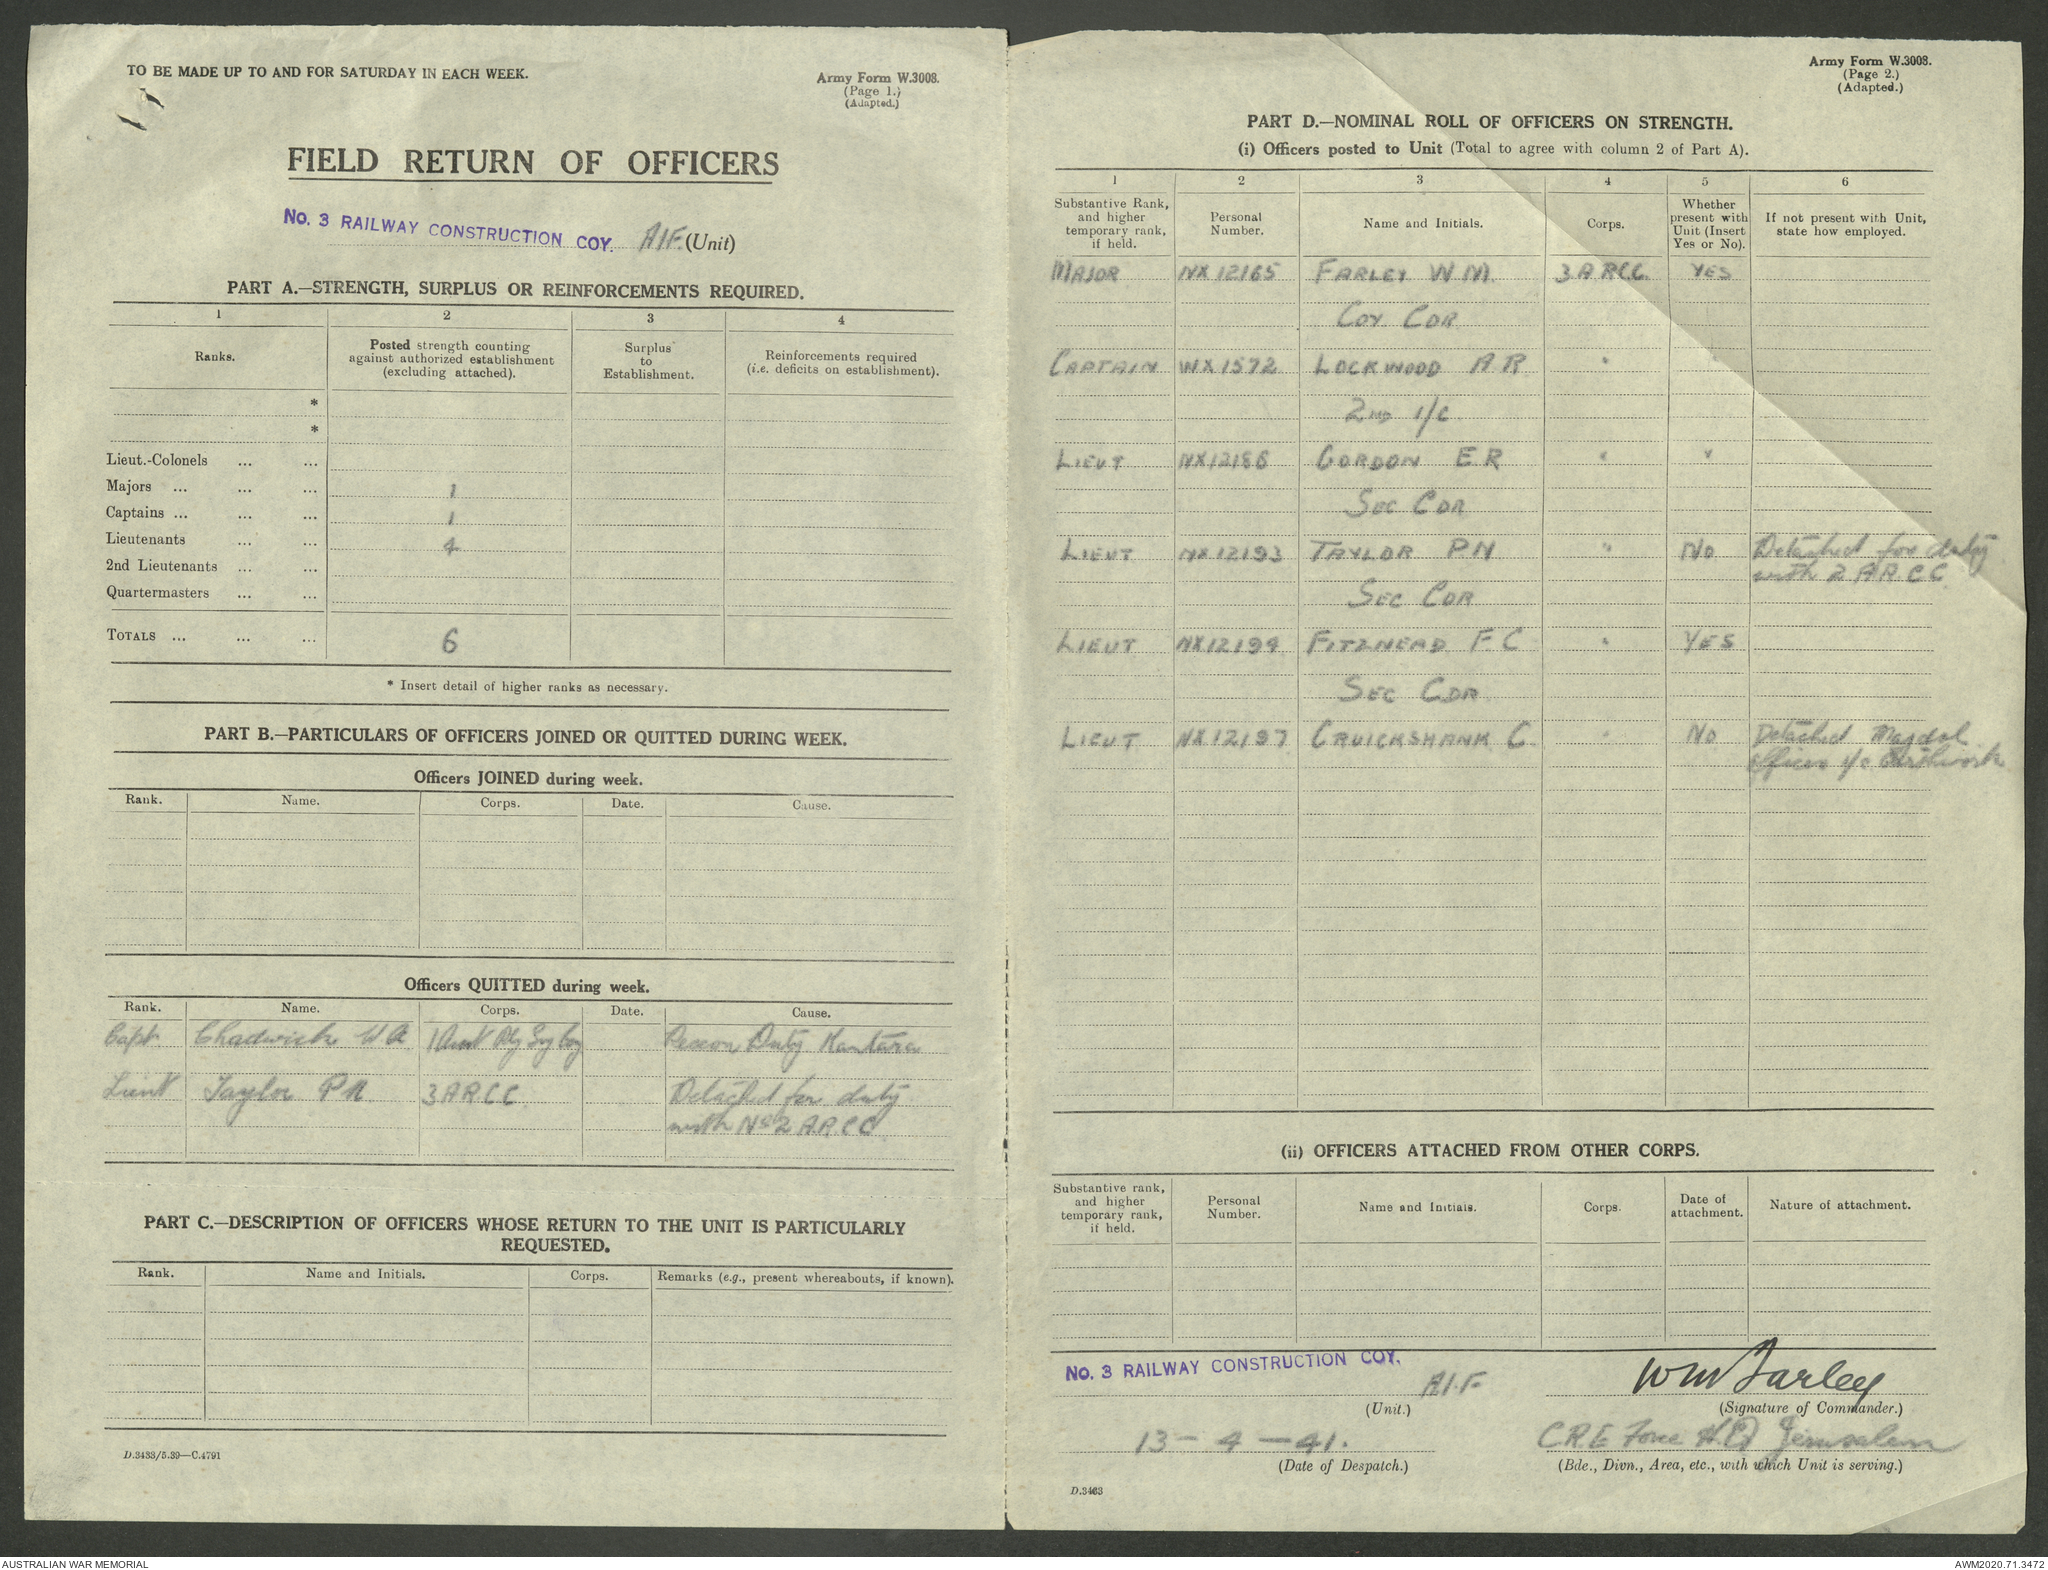 TO BE MADE UP TO AND FOR SATURDAY IN EACH WEEK.
Army Form W.3008.
(Page 1.)
(Adapted.)
FIELD RETURN OF OFFICERS
No. 3 RAILWAY CONSTRUCTION COY. AIF (Unit)
PART A.—STRENGTH, SURPLUS OR REINFORCEMENTS REQUIRED.
1 2 3 4
Ranks.
Posted strength counting
against authorized establishment
(excluding attached).
Surplus
to
Establishment.
Reinforcements required
(i.e. deficits on establishment).
*
*
Lieut.-Colonels ... ...
Majors ... ... ... 1
Captains ... ... ... 1
Lieutenants ... ... 4
2nd Lieutenants ... ...
Quartermasters ... ...
TOTALS ... ... ... 6
* Insert detail of higher ranks as necessary.
PART B.—PARTICULARS OF OFFICERS JOINED OR QUITTED DURING WEEK.
Officers JOINED during week.
Rank. Name. Corps. Date. Cause.
Officers QUITTED during week.
Rank. Name. Corps. Date. Cause.
Capt. Chadwick W A 1 Rly Coy Duty Kantara
Lieut Taylor P N 3 ARCC Detached for duty
with No 2 A.R.C.C.
PART C.—DESCRIPTION OF OFFICERS WHOSE RETURN TO THE UNIT IS PARTICULARLY
REQUESTED.
Rank. Name and Initials. Corps. Remarks (e.g., present whereabouts, if known).
D.3433/5.39—C.4791
Army Form W.3008.
(Page 2.)
(Adapted.)
PART D.—NOMINAL ROLL OF OFFICERS ON STRENGTH.
(i) Officers posted to Unit (Total to agree with column 2 of Part A).
1 2 3 4 5 6
Substantive Rank,
and higher
temporary rank,
if held.
Personal
Number.
Name and Initials.
Corps.
Whether
present with
Unit (Insert
Yes or No).
If not present with Unit,
state how employed.
MAJOR NX 12165 FARLEY W M 3 A RCC YES
COY CDR
CAPTAIN WX 1572 LOCKWOOD A R " "
2ND I/C
LIEUT NX12186 GORDON E R " "
SEC CDR
LIEUT NX 12193 TAYLOR P N " NO Detached for duty
with 2 A R C C
SEC CDR
LIEUT NX12194 FITZNEAD F C " YES
SEC CDR
LIEUT NX 12197 CRUICKSHANK G " NO Detached Majdal
Officer i/c Earthwork
(ii) OFFICERS ATTACHED FROM OTHER CORPS.
Substantive rank,
and higher
temporary rank,
if held.
Personal
Number.
Name and Initials.
Corps.
Date of
attachment.
Nature of attachment.
No. 3 RAILWAY CONSTRUCTION COY. A.I.F
(Unit.)
WM Farley
(Signature of Commander.)
13 - 4 - 41.
(Date of Despatch.)
C.R.E Force H.Q Jerusalem
(Bde., Divn., Area, etc., with which Unit is serving.)
D.3433
AUSTRALIAN WAR MEMORIAL
AWM2020.71.3472